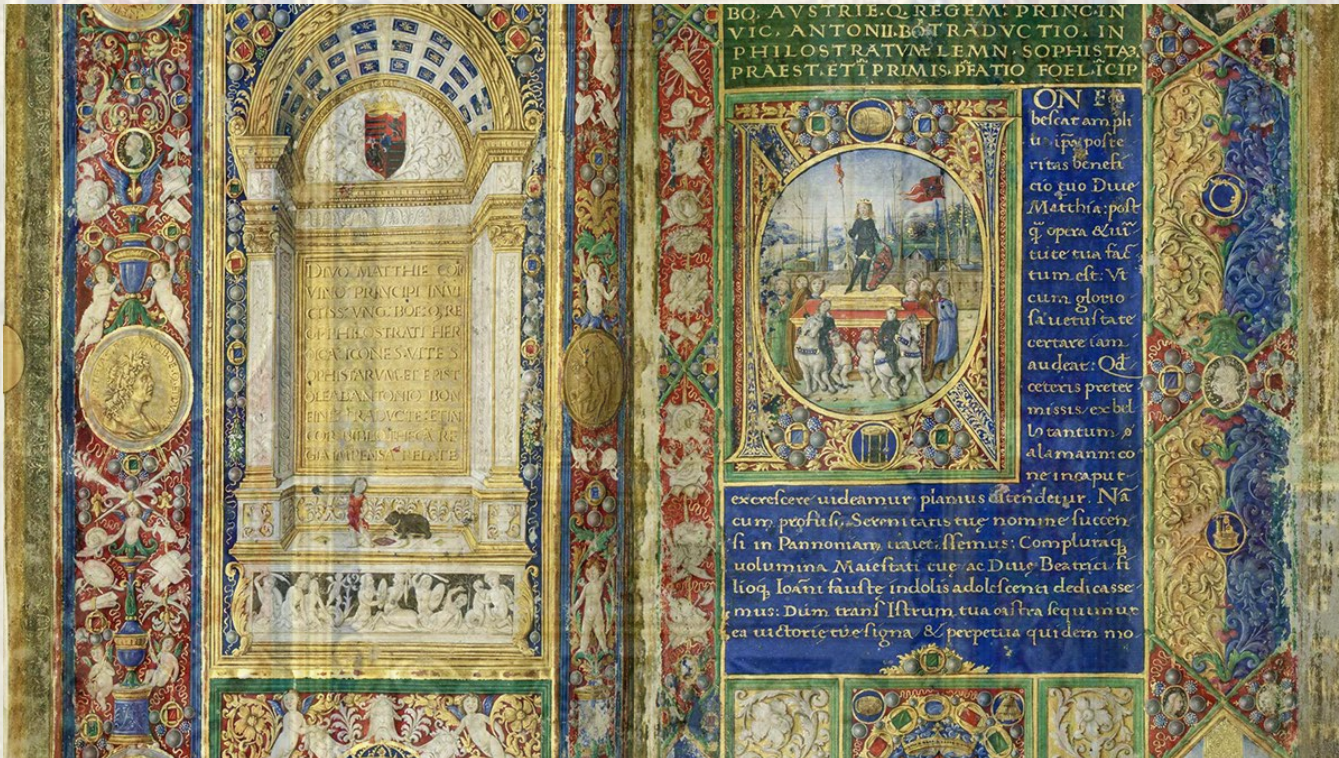 DIVO MATTHIE COR
VINO PRINCIPI INVI
CTISS VNG BOE Q RE
GI PHILOSTRATI HER
OICA ICONES VITE S
OPHISTARVM ET EPIST
OLE AB ANTONIO BON
FINE TRADVCTE ET IN
BIBLIOTHECA RE
BO. AVSTRIE.Q.REGEM: PRINC.IN
VIC. ANTONII.BO TRADVCTIO. IN
PHILOSTRATVM LEMN. SOPHISTA
PRAEST. ETI PRIMIS. PFATIO FOELICIP
ON
bescat ampli
u ipa poste
ritas benefi
cio tuo Diue
Matthia: post
q opera & uir
tute tua fac
tum est: Vt
cum glorio
sa uetustate
certare iam
audeat: Qd
ceteris preter
missis ex bel
lo tantum
alamannico
ne in caput
excrescere uideamur planius ostendetur. Na
cum profusi. Serenitatis tuę nomine succen
si in Pannoniam uenissemus: Complura q
uolumina Maiestati tuę ac Diuę Beatrici fi
lioq Ioani fauste indolis adolescenti dedicasse
mus: Dum trans Istrum tua castra sequimur
ea uictorię tuę signa & perpetua quidem mo